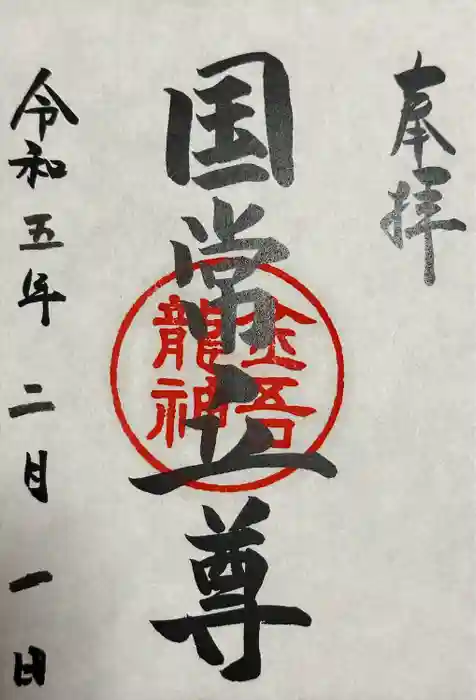 奉拝
国常立尊
金吾
龍神
令和五年 二月 一日